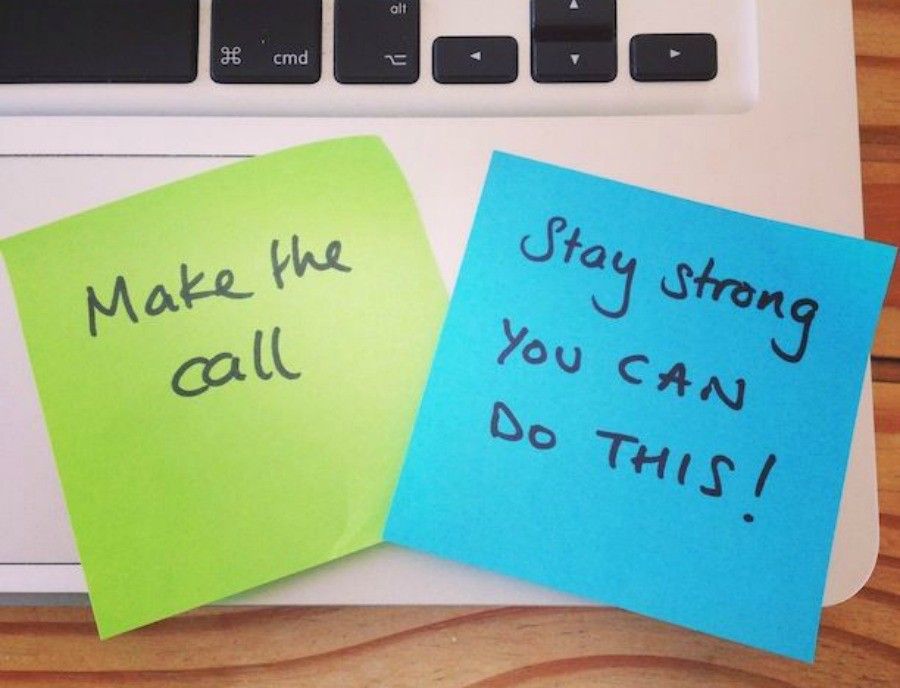 alt
⌘ cmd
⌥
◄
▲
▼
►
Make the
call
Stay strong
YOU CAN
DO THIS!